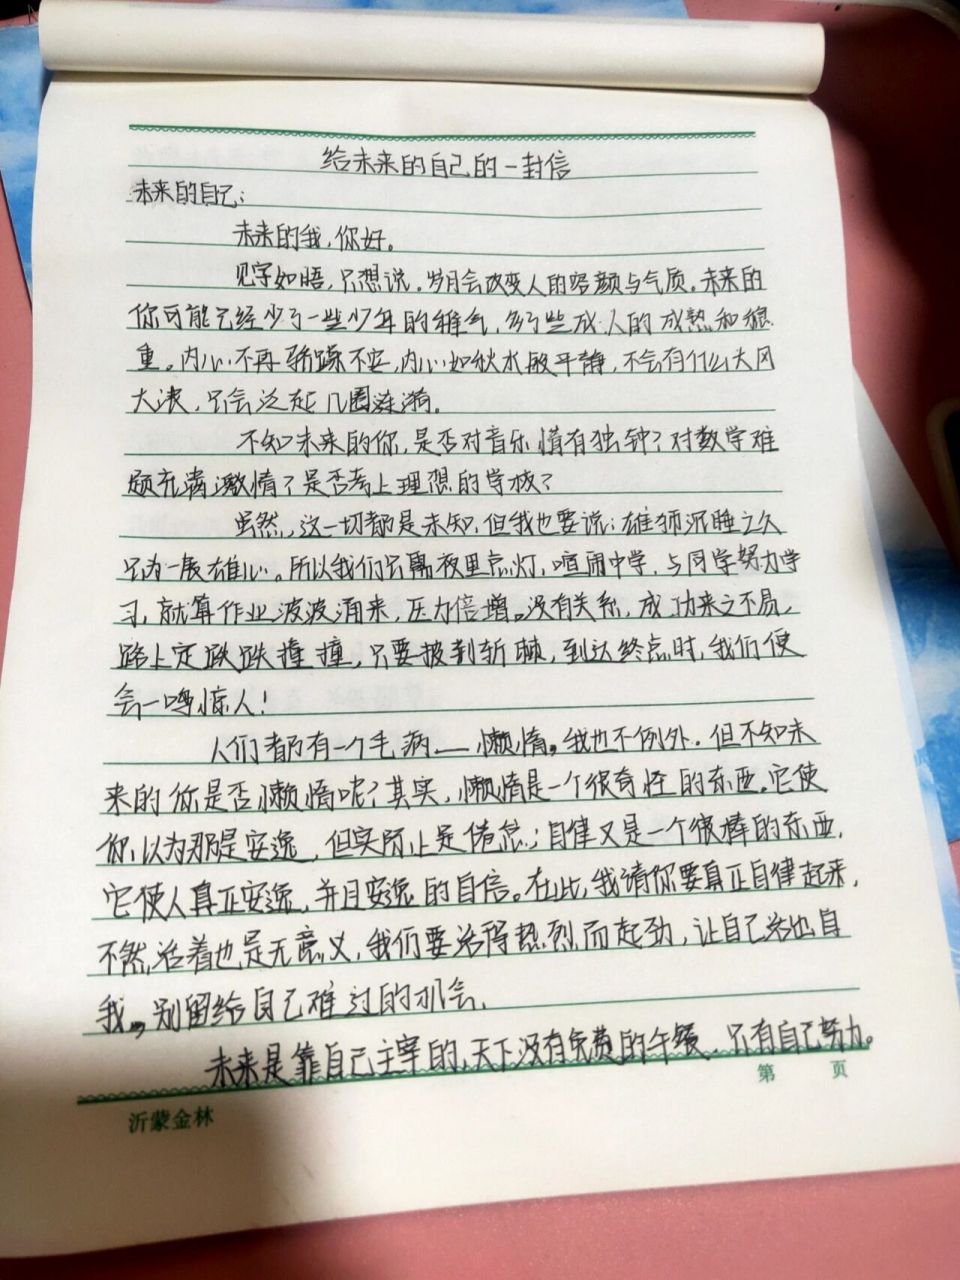 给未来的自己的一封信
未来的自己:
未来的我,你好。
见字如晤,只想说。岁月会改变人的容颜与气质。未来的
你可能已经少了一些少年的稚气,多了些成人的成熟和稳
重。内心不再骄躁不安,内心如秋水般平静,不会有什么大风
大浪,只会泛起几圈涟漪。
不知未来的你,是否对音乐情有独钟?对数学难
题充满激情?是否考上理想的学校?
虽然,这一切都是未知,但我也要说:雄狮沉睡之久
只为一展雄心。所以我们只需夜里点灯,喧闹中学,与同学努力学
习,就算作业波波涌来,压力倍增。没有关系,成功来之不易,
路上定跌跌撞撞,只要披荆斩棘,到达终点时,我们便
会一鸣惊人!
人们都有一个毛病——懒惰。我也不例外.但不知未
来的你是否懒惰呢?其实,懒惰是一个很奇怪的东西.它使
你以为那是安逸,但实际上是倦怠;自律又是一个很棒的东西,
它使人真正安逸,并且安逸的自信。在此,我请你要真正自律起来,
不然,活着也是无意义,我们要活得热烈而起劲,让自己活出自
我,别留给自己难过的机会,
未来是靠自己主宰的,天下没有免费的午餐,只有自己努力。
第 页
沂蒙金林